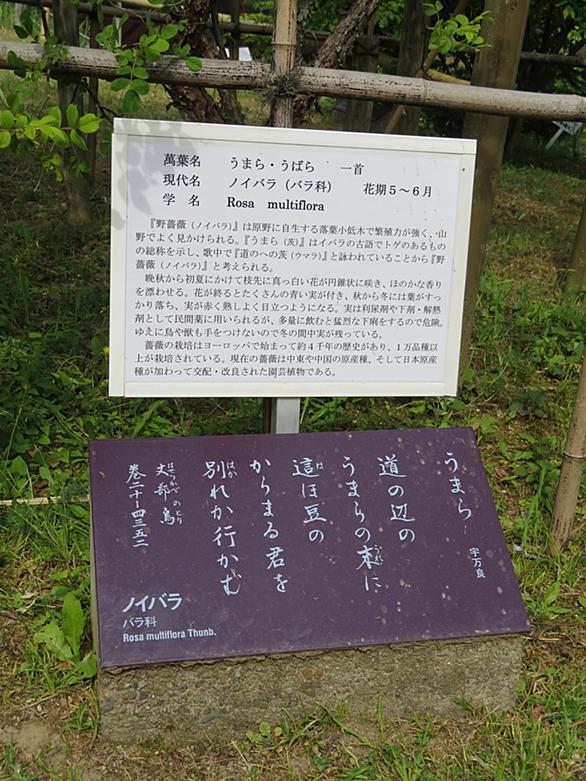 萬葉名　うまら・うばら　一首
現代名　ノイバラ（バラ科）　花期５～６月
学　名　Rosa multiflora
『野薔薇（ノイバラ）』は原野に自生する落葉小低木で繁殖力が強く、山
野でよく見かけられる。『うまら（茨）』はイバラの古語でトゲのあるもの
の総称を示し、歌中で『道のへの茨（ウマラ）』と詠われていることから『野
薔薇（ノイバラ）』と考えられる。
晩秋から初夏にかけて枝先に真っ白い花が円錐状に咲き、ほのかな香り
を漂わせる。花が終るとたくさんの青い実が付き、秋から冬には葉がすっ
かり落ち、実が赤く熟しよく目立つようになる。実は利尿剤や下剤・解熱
剤として民間薬に用いられるが、多量に飲むと猛烈な下痢をするので危険。
ゆえに鳥や獣も手をつけないので冬の間中実が残っている。
薔薇の栽培はヨーロッパで始まって約４千年の歴史があり、１万品種以
上が栽培されている。現在の薔薇は中東や中国の原産種、そして日本原産
種が加わって交配・改良された園芸植物である。
うまら　宇万良
道の辺の
うまらの末に
這ほ豆の
からまる君を
別れか行かむ
丈部鳥
巻二十－四三五二
ノイバラ
バラ科
Rosa multiflora Thunb.